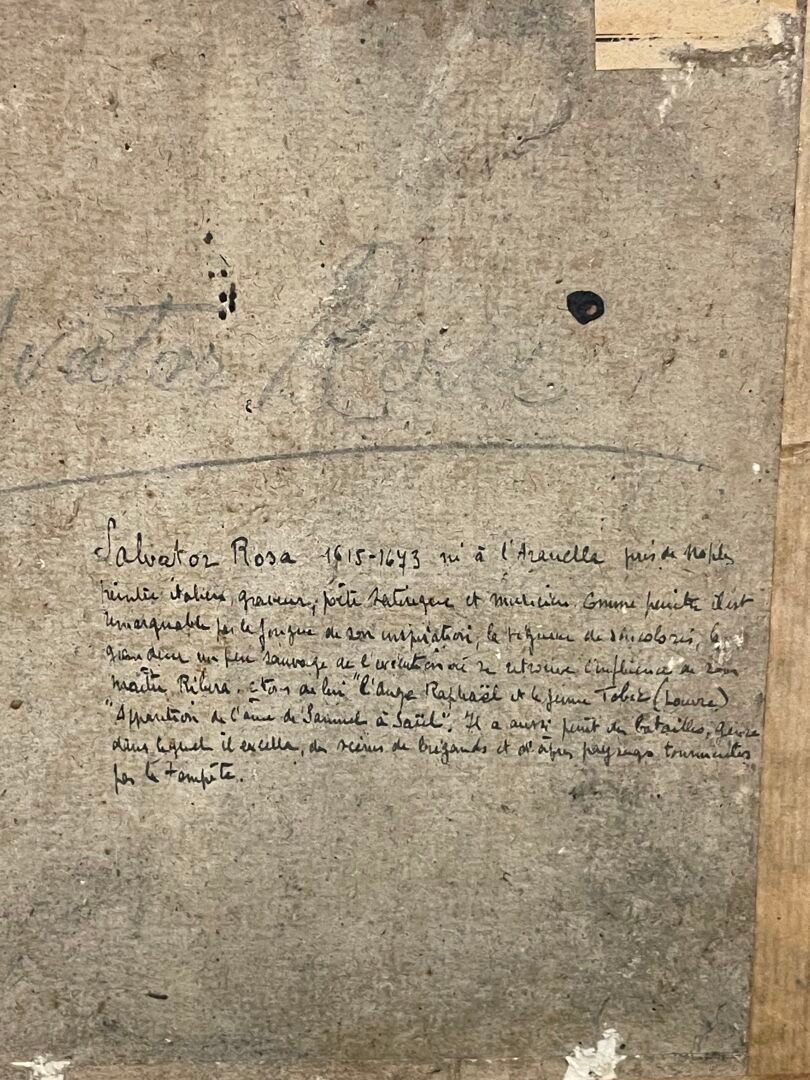 lvator Rosa
Salvator Rosa 1615-1673 né à l'Arenella près de Naples
peintre italien, graveur, poète satirique et musicien. Comme peintre il est
remarquable par la fougue de son inspiration, la vigueur de son coloris, la
grandeur un peu sauvage de l'exécution où se retrouve l'influence de son
maître Ribera. citons de lui "l'Ange Raphaël et le jeune Tobie (Louvre)
"Apparition de l'âme de Samuel à Saül". Il a aussi peint des batailles, genre
dans lequel il excella, des scènes de brigands et d'âpres paysages tourmentés
par la tempête.